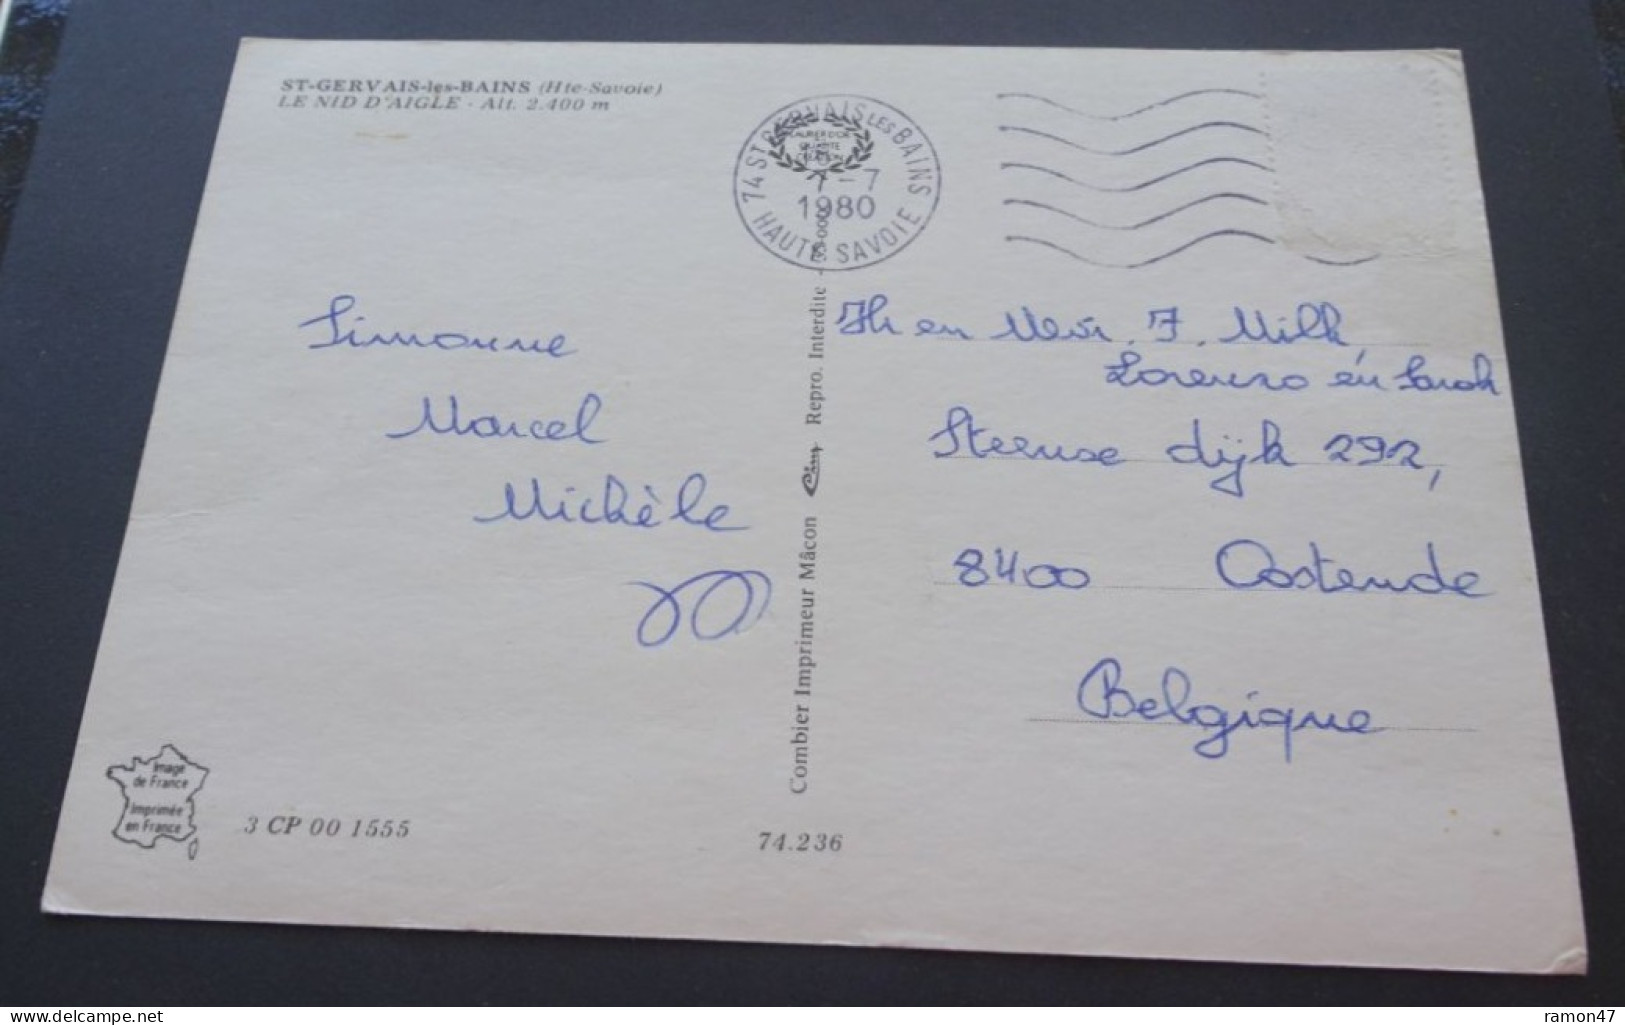 ST-GERVAIS-les-BAINS (Hte-Savoie)
LE NID D'AIGLE - Alt. 2.400 m
74 ST GERVAIS LES BAINS
LAURIER D'OR
QUALITE
CREATION
-7
1980
HAUTE SAVOIE
Simonne
Marcel
Michèle
Combier Imprimeur Mâcon Cim Repro. Interdite
en Mevr. F. Milh,
Lorenzo en Sarah
Steense dijk 292,
8400 Oostende
Belgique
Image
de France
Imprimée
en France
3 CP 00 1555
74.236
delcampe.net
ramon47